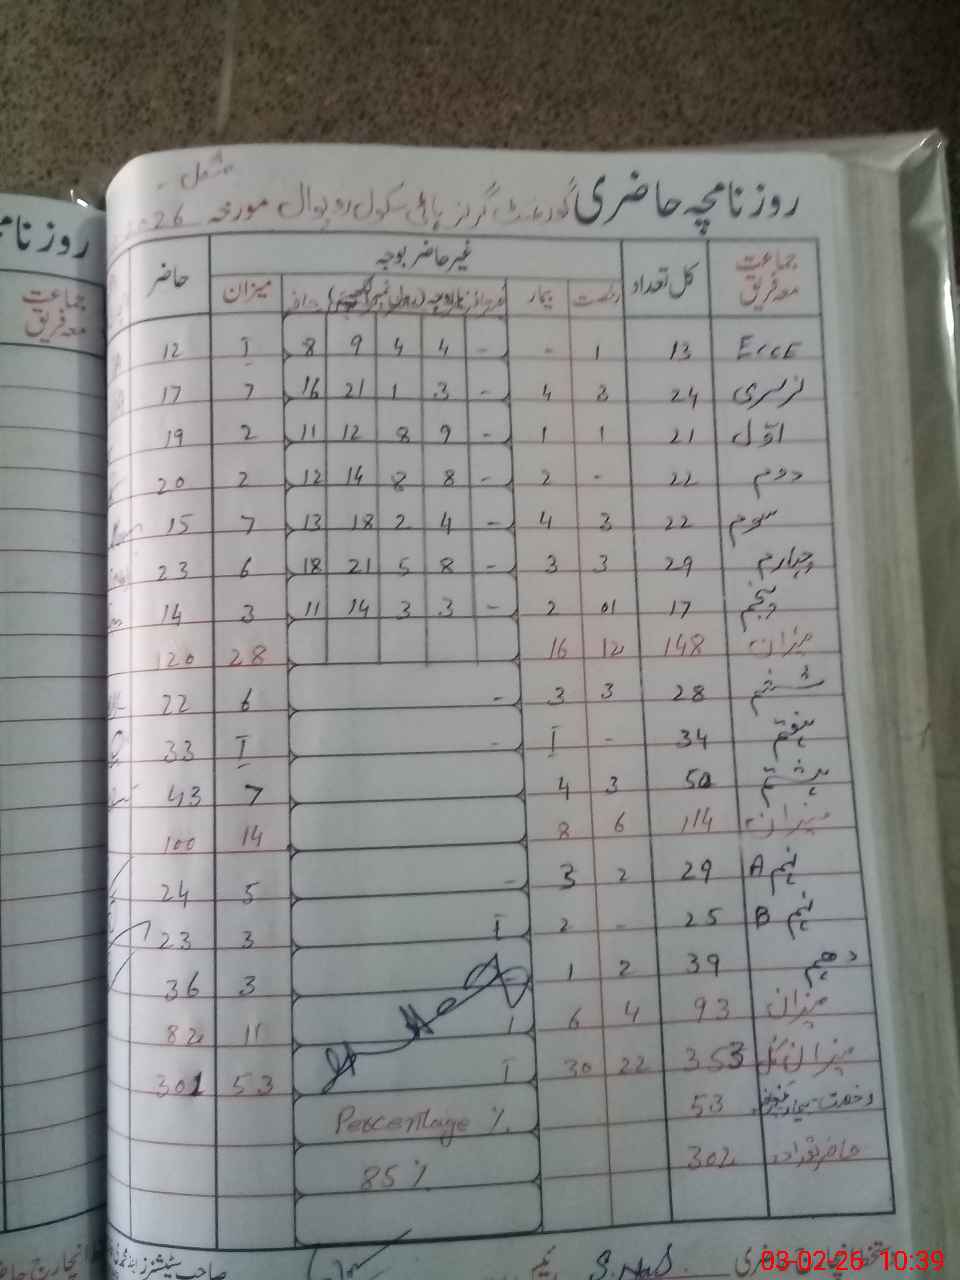 روزنامچہ حاضری گورنمنٹ گرلز ہائی سکول روپوال مورخہ 26
روزنامچہ
جماعت معہ فریق کل تعداد غیر حاضر بوجہ حاضر
رخصت بیمار میزان
Ecce 13 1 - - 4 4 9 8 I 12
نرسری 24 3 4 - 3 1 21 16 7 17
اوّل 21 1 1 - 9 8 12 11 2 19
دوم 22 - 2 - 8 8 14 12 2 20
سوم 22 3 4 - 4 2 18 13 7 15
چہارم 29 3 3 - 8 5 21 18 6 23
پنجم 17 01 2 - 3 3 14 11 3 14
میزان 148 12 16 28 120
ششم 28 3 3 - 6 22
ہفتم 34 - I - I 33
ہشتم 50 3 4 7 43
میزان 114 6 8 14 100
نہم A 29 2 3 - 5 24
نہم B 25 - 2 I 3 23
دہم 39 2 1 3 36
میزان 93 4 6 1 11 82
میزان کل 353 22 30 I 53 301
رخصت بیمار 53
Percentage %
حاضر تعداد 302
85 %
جماعت معہ فریق
صاحب سٹیشنرز
انچارج
03-02-26 10:39